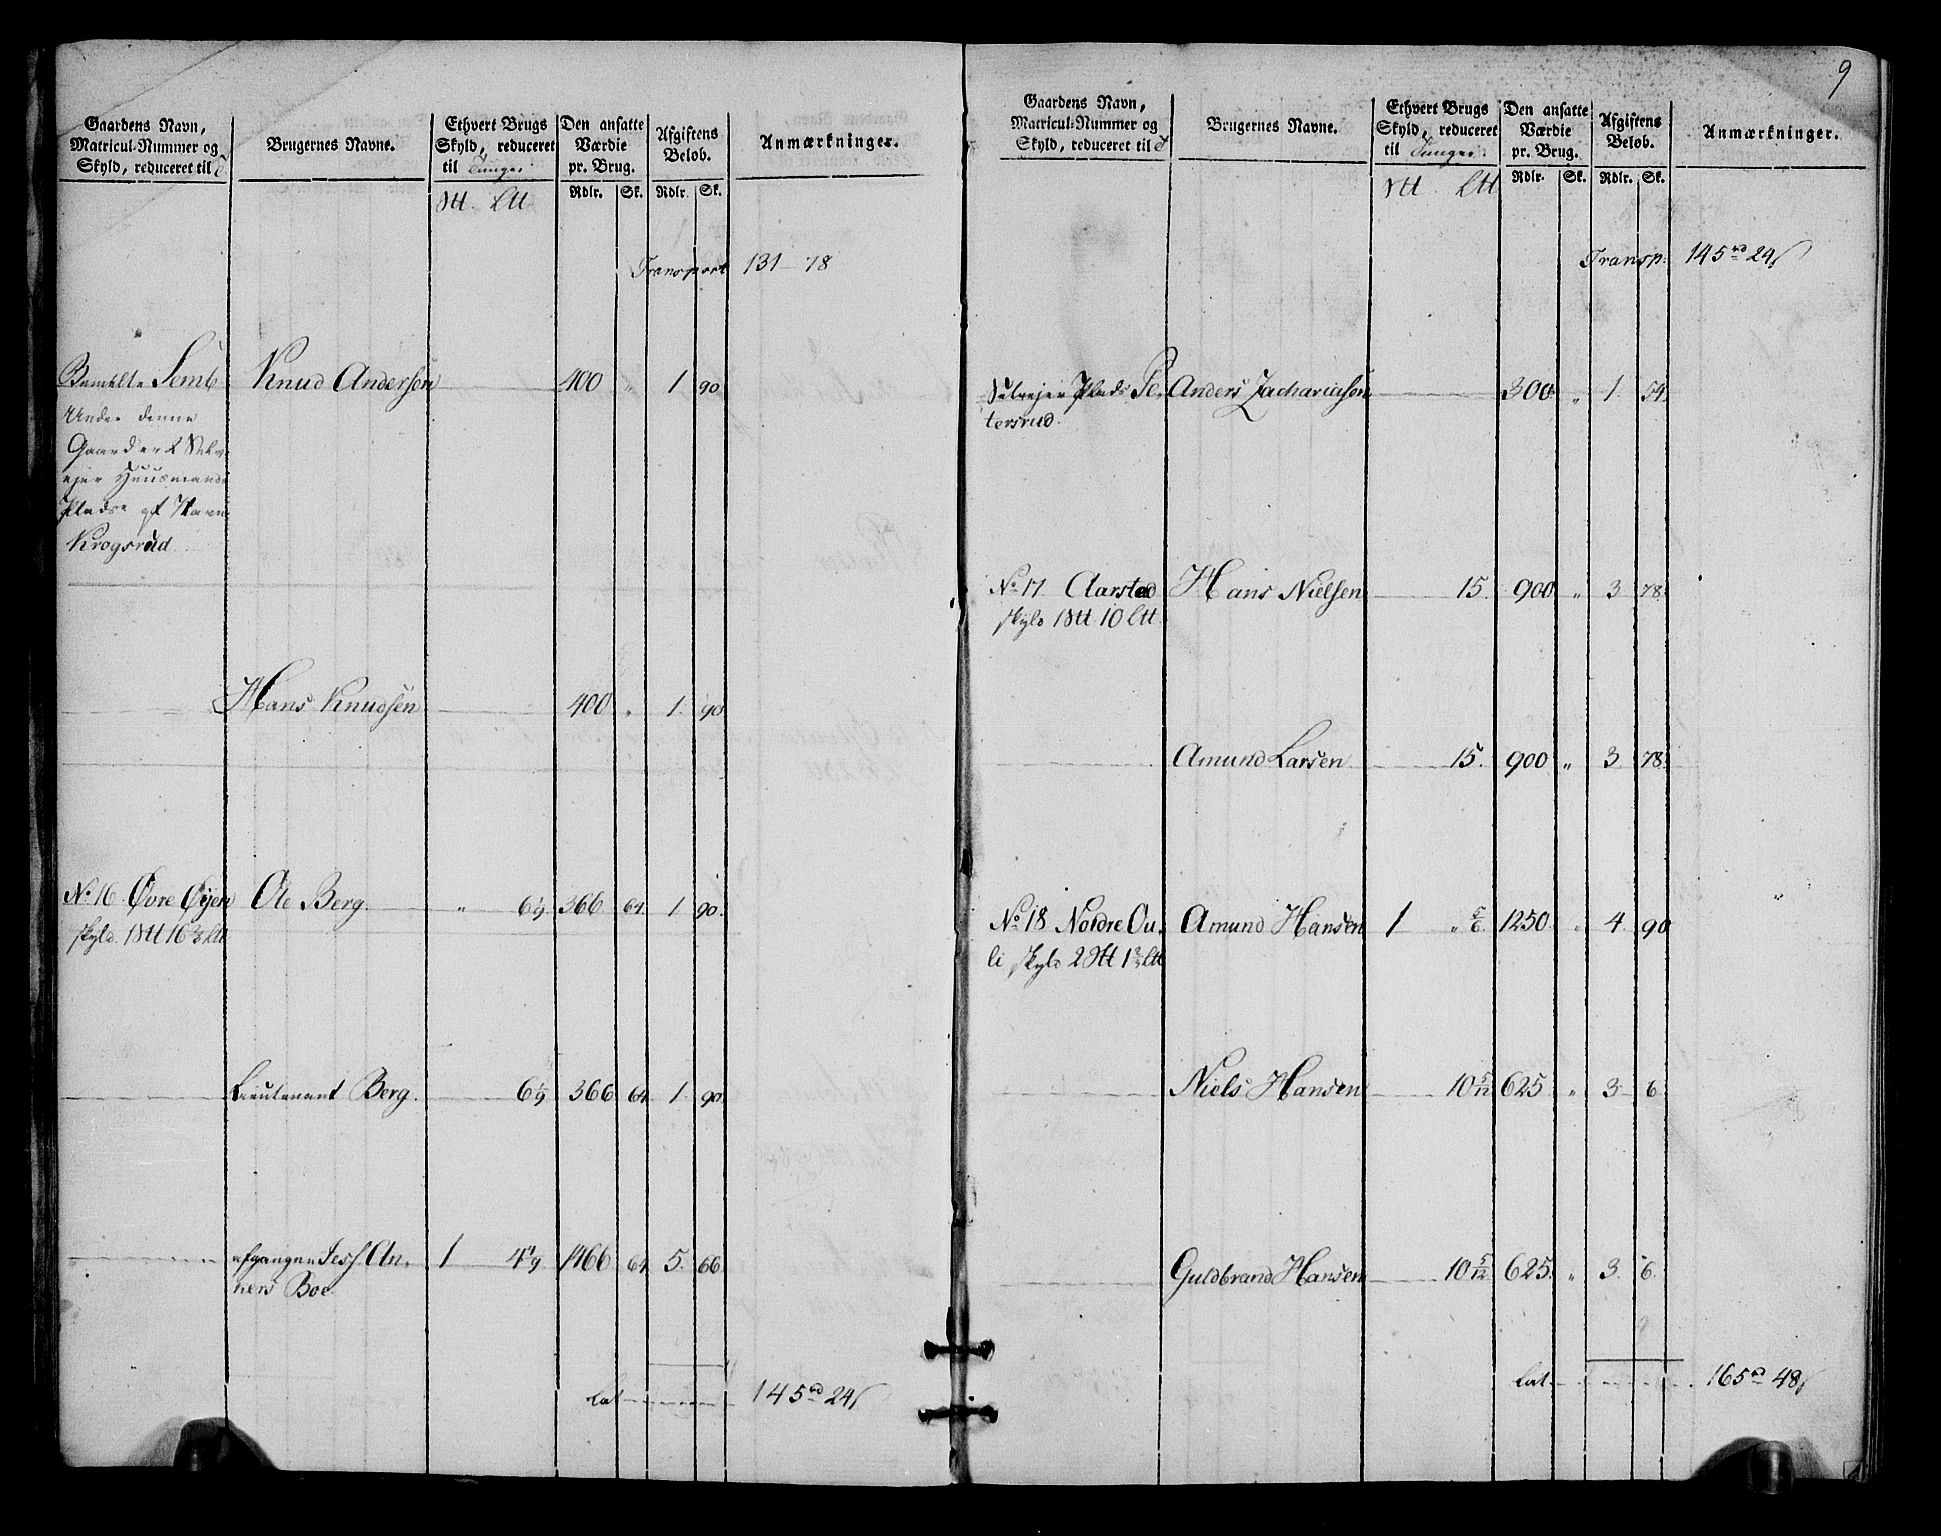 Gaardens Navn,
Matricul-Nummer og
Skyld, reduceret til T
Brugernes Navne.
Ethvert Brugs
Skyld, reduceret
til Tunge
Den ansatte
Værdie
pr. Brug.
Afgiftens
Beløb.
Anmærkninger.
Rdlr. Sk. Rdlr. Sk.
Transport 131 - 78
Bemelte Semb Knud Andersen 400 " 1 90
Under denne
Gaard er 2 Selv
ejer Huusmands
Pladse af Navn
Krogsrud
Hans Knudsen 400 " 1. 90
No 16 Øvre Øyen Ole Berg " 6 1/9 366 64 1 90.
skyld 1 16 2/3
Lieutenant Berg. 6 1/9 366 64 1. 90.
afgangne Jess. An-
ners Boe 1 4 4/9 1466 64 5. 66.
Lat 145 rd 24 s
9
Gaardens Navn,
Matricul-Nummer og
Skyld, reduceret til T
Brugernes Navne.
Ethvert Brugs
Skyld, reduceret
til Tunge
Den ansatte
Værdie
pr. Brug.
Afgiftens
Beløb.
Anmærkninger.
Rdlr. Sk. Rdlr. Sk.
Transp: 145 rd 24 s
Selvejer Plads Pe- Anders Zachariasen 300 " 1. 54.
tersrud.
No 17 Aarstad Hans Nielsen 15. 900 " 3 78.
skyld 1 10
Amund Larsen 15. 900 " 3. 78.
No 18 Nordre Ou- Amund Hansen 1 " 5/6 1250. " 4. 90
li skyld 2 1 2/3
Niels Hansen 10 5/12 625 " 3 6.
Guldbrand Hansen 10 5/12 625. " 3. 6.
Lat 165 rd 48 s